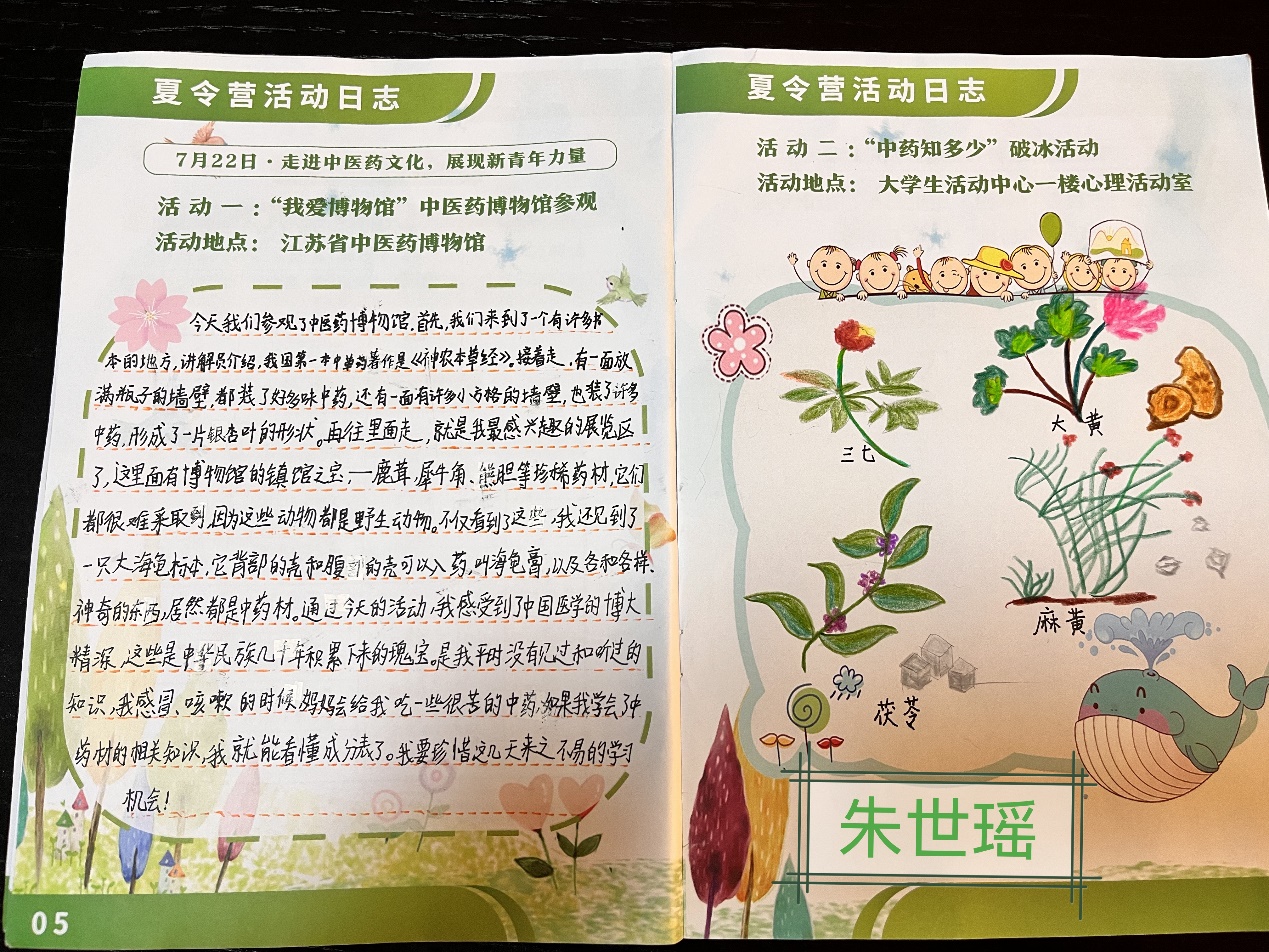 夏令营活动日志
7月22日·走进中医药文化，展现新青年力量
活动一：“我爱博物馆”中医药博物馆参观
活动地点： 江苏省中医药博物馆
今天我们参观了中医药博物馆.首先,我们来到了一个有许多书
本的地方,讲解员介绍,我国第一本中草药著作是《神农本草经》。接着走,有一面放
满瓶子的墙壁,都装了好多味中药,还有一面有许多小方格的墙壁,也装了许多
中药,形成了一片银杏叶的形状。再往里面走,就是我最感兴趣的展览区
了,这里面有博物馆的镇馆之宝:一鹿茸、犀牛角、熊胆等珍稀药材,它们
都很难采取到,因为这些动物都是野生动物。不仅看到了这些,我还见到了
一只大海龟标本,它背部的壳和腹部的壳可以入药,叫海龟膏,以及各和各样、
神奇的东西,居然都是中药材。通过今天的活动,我感受到了中国医学的博大
精深,这些是中华民族几千年积累下来的瑰宝。是我平时没有见过和听过的
知识,我感冒、咳嗽的时候妈妈会给我吃一些很苦的中药,如果我学会了中
药材的相关知识,我就能看懂成分表了。我要珍惜这几天来之不易的学习
机会!
05
夏令营活动日志
活动二：“中药知多少”破冰活动
活动地点： 大学生活动中心一楼心理活动室
三七
大黄
麻黄
茯苓
朱世瑶